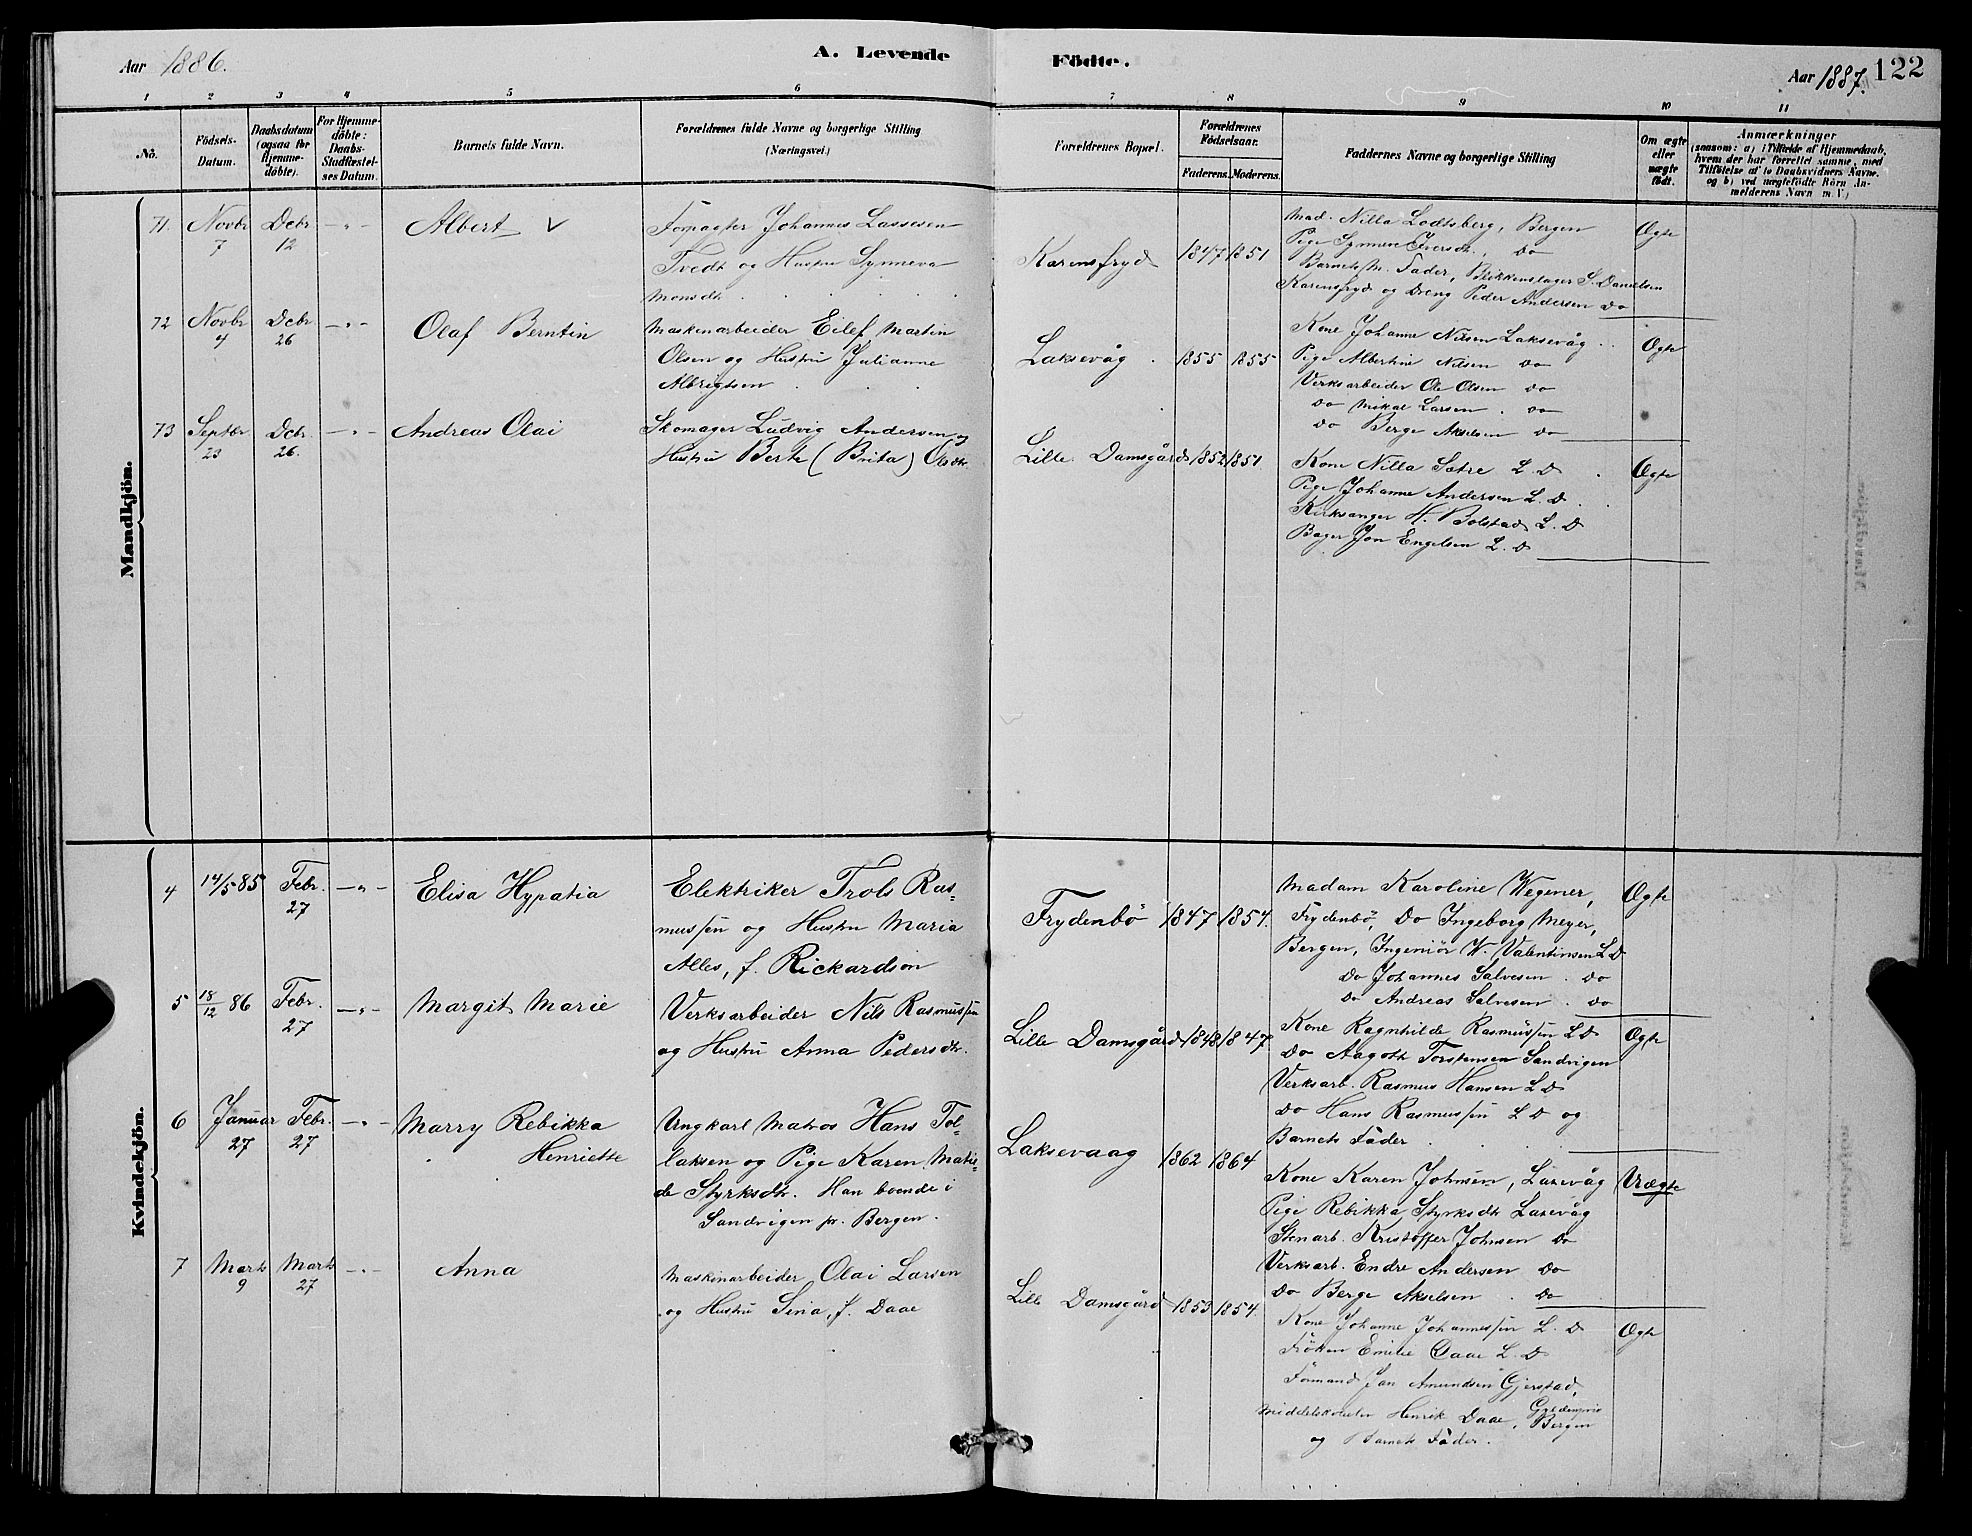 Aar 1886.
A. Levende Födte.
Aar 1887.
122
1 2 3 4 5 6 7 8 9 10 11
No.
Födsels-Datum.
Daabsdatum (ogsaa for Hjemmedöbte).
For Hjemmedöbte: Daabs-Stadfæstelses Datum.
Barnets fulde Navn.
Forældrenes fulde Navne og borgerlige Stilling (Næringsvei.)
Forældrenes Bopæl.
Forældrenes Födselsaar.
Faderens. Moderens.
Faddernes Navne og borgerlige Stilling
Om ægte eller uægte födt.
Anmærkninger
(saasom: a) i Tilfælde af Hjemmedaab, hvem der har forrettet samme, med Tilföielse af to Daabsvidners Navne. og b) ved uægtefödte Börn Anmelderens Navn m. V.)
Mandkjön.
71. Novbr 7 Dcbr 12 - „ - Albert V
Forpagter Johannes Lassesen
Tvedt og Hustru Synneva
Monsdtr.
Karensfryd 1847 1851
Mad. Nilla Lodtsberg, Bergen
Pige Synneve Iversdtr., do
Barnets M. Fader, Blikkenslager S. Danielsen
Karensfryd og Dreng Peder Andersen do
Ægte
72 Novbr 4 Dcbr 26 - „ - Olaf Berntin
Maskinarbeider Eilef Martin
Olsen og Hustru Julianne
Albrigtsen
Laksevåg 1855 1855
Kone Johanne Nilsen Laksevåg
Pige Albertine Nilsen do
Verksarbeider Ole Olsen do
do Mikal Larsen do
do Berge Akselsen do
Ægte
73 Septbr 23 Dcbr. 26. - „ - Andreas Olai
Skomager Ludvig Andersen og
Hustru Berte (Brita) Olsdtr.
Lille Damsgård 1852 1851
Kone Nilla Sætre L. D
Pige Johanne Andersen L. D
Kirksanger H. Bolstad L. D
Bager Jon Engelsen L. D
Ægte
Kvindekjön.
4 14/5 85 Febr. 27 - „ - Elisa Hypatia
Elektriker Trols Ras-
mussen og Hustru Maria
Alles, f. Rickardson
Frydenbö 1847 1854.
Madam Karoline Wegener,
Frydenbö, Do Ingeborg Meyer,
Bergen, Ingeniör W. Valentinsen L D
do Johannes Salvesen do
do Andreas Salvesen do
Ægte
5 18/12 86 Febr. 27 - „ - Margit Marie
Verksarbeider Nils Rasmussen
og Hustru Anna Pedersdtr.
Lille Damsgård 1848 1847
Kone Ragnhilde Rasmussen L D
do Aagoth Torstensen Sandvigen
Verksarb. Rasmus Hansen L D
do Hans Rasmussen L D og
Barnets Fader
Ægte
6 Januar 27 Febr. 27 - „ - Marry Rebikka
Henriette
Ungkarl Matros Hans Tol-
laksen og Pige Karen Matil-
de Styrksdtr. Han boende i
Sandvigen pr. Bergen.
Laksevaag 1862 1864
Kone Karen Johnsen, Laxevåg
Pige Rebikka Styrksdtr Laxevåg
Stenarb. Kristoffer Johnsen do
Verksarb. Endre Andersen do
do Berge Akselsen do
Uægte
7 Marts 9 Marts 27 - „ - Anna
Maskinarbeider Olai Larsen
og Hustru Sina, f. Daae
Lille Damsgård 1853 1854.
Kone Johanne Johannessen L. D
Fröken Emilie Daae L. D
Formand Jan Amundsen Gjerstad,
Henrik Daae, Bergen
og Barnets Fader.
Ægte